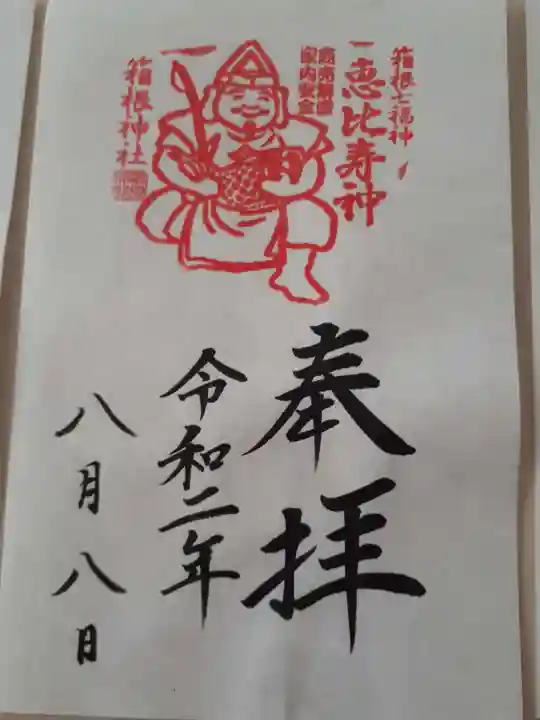 箱根七福神
恵比寿神
商売繁盛
家内安全
箱根神社
奉拝
令和二年
八月八日